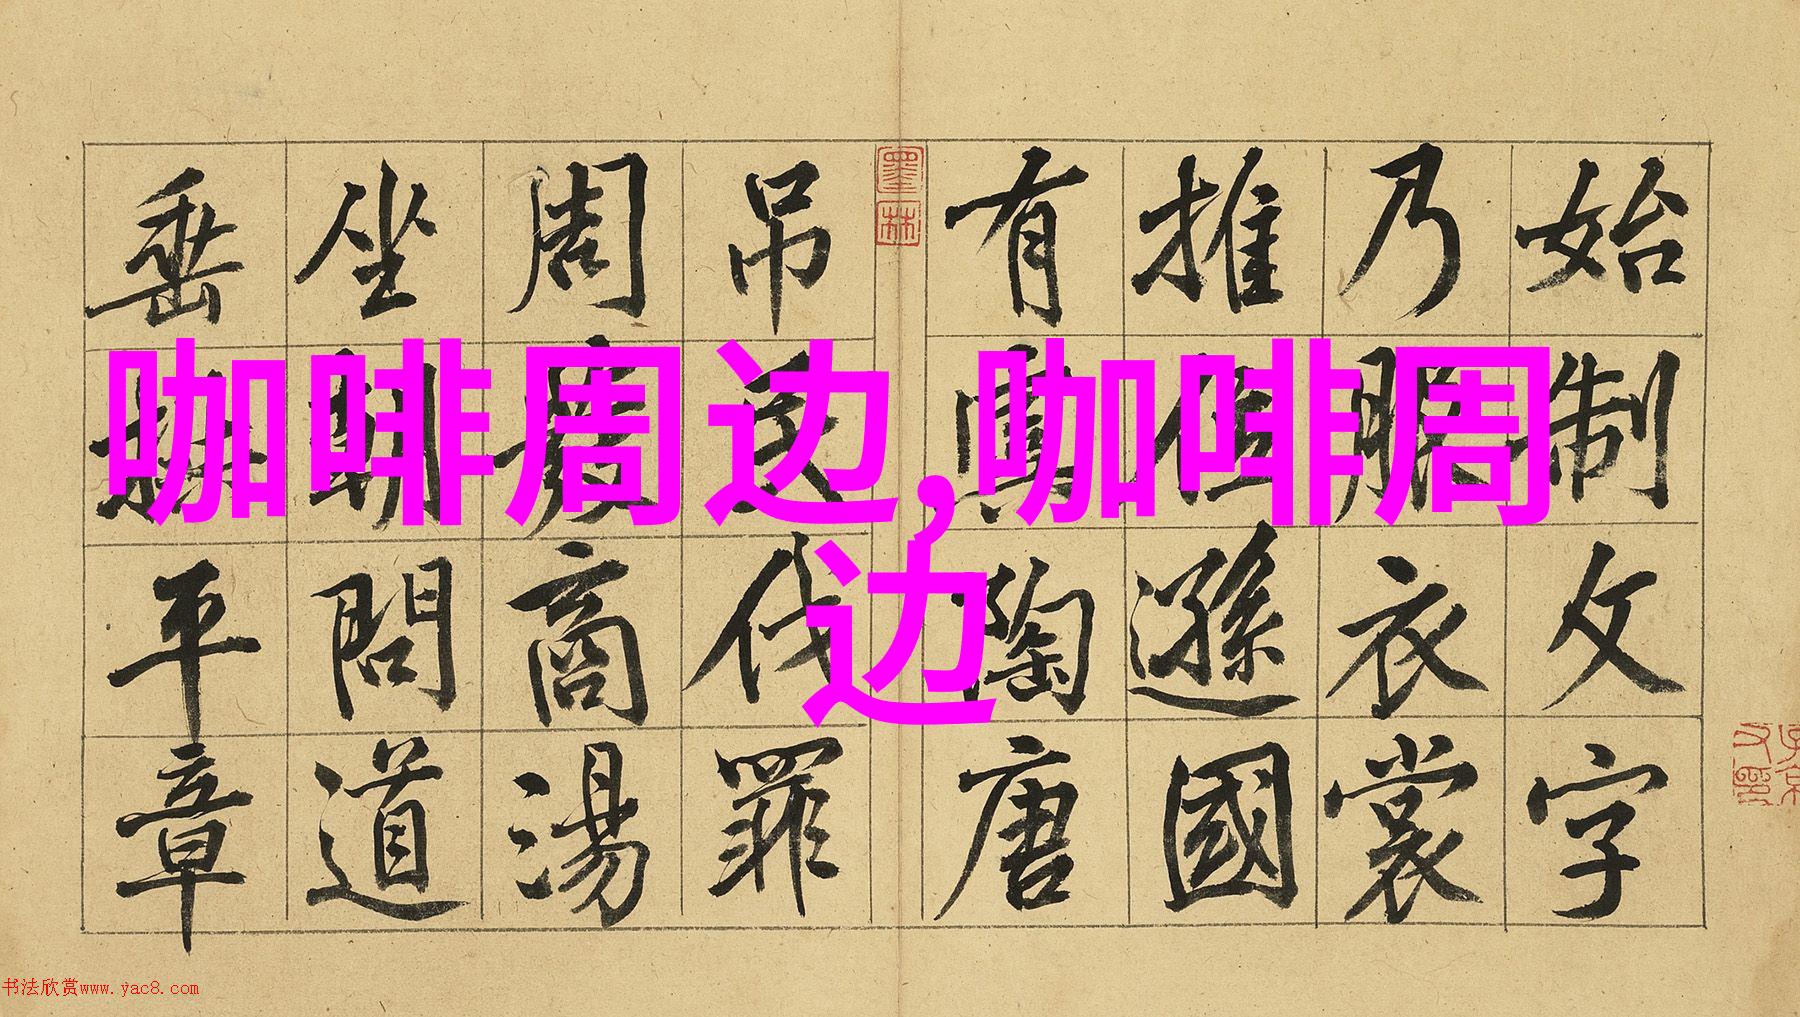 始制文字
乃服衣裳
推位遜國
有虞陶唐
墨林
吊民伐罪
周發商湯
坐朝問道
垂拱平章
咖啡周边,咖啡周
边
书法欣赏www.yac8.com